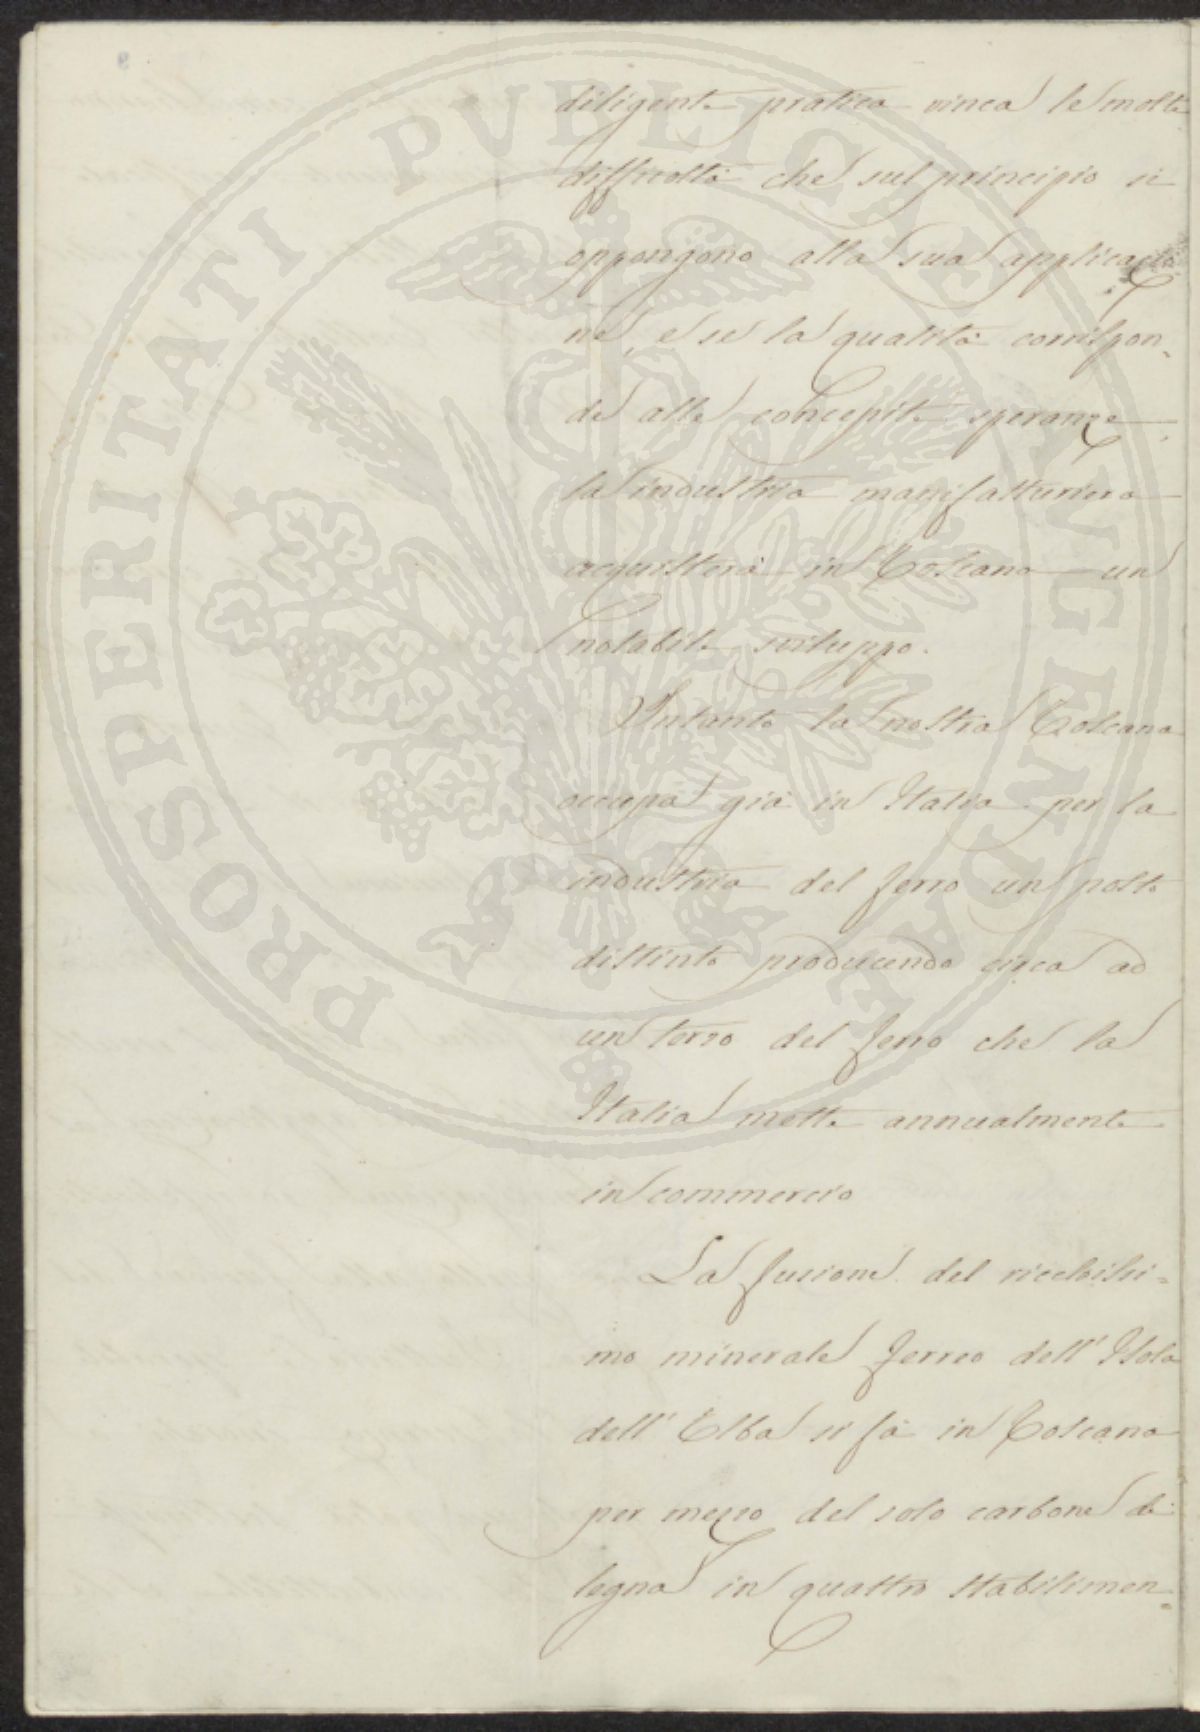 diligente pratica vinca le molte
difficoltà che sul principio si
oppongono alla sua applicazio
ne, e se la qualità corrispon-
de alle concepite speranze,
la industria manifatturiera
acquisterà in Toscana un
notabile sviluppo.
Intanto la nostra Toscana
occupa già in Italia per la
industria del ferro un posto
distinto producendo circa ad
un terzo del ferro che la
Italia mette annualmente
in commercio
La fusione del ricchissi-
mo minerale ferreo dell'Isola
dell'Elba si fà in Toscana
per mezzo del solo carbone di
legna in quattro stabilimen-
PROSPERITATI PVBLICAE AVGENDAE